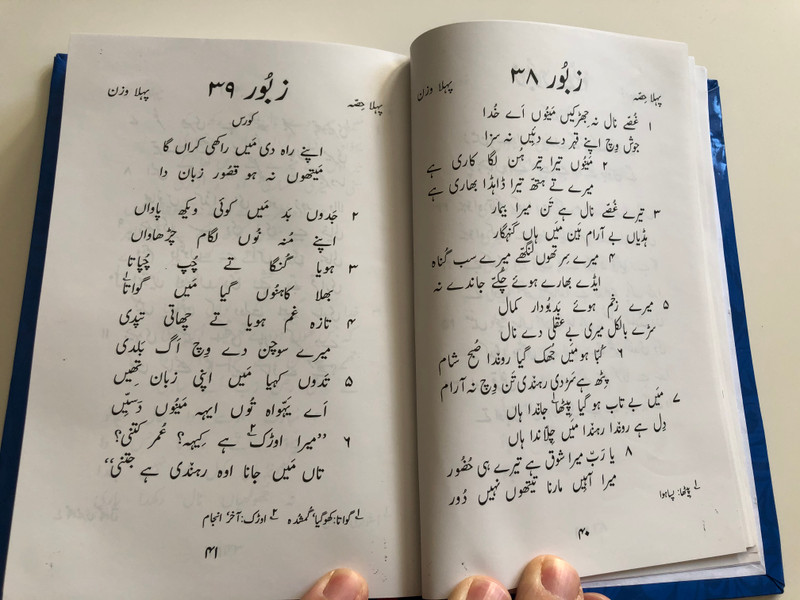 زبُور ۳۸
پہلا حِصّہ
پہلا وزن
۱ غُصّے نال نہ جِھڑکیں مَینُوں اَے خُدا
جوش وِچ اپنے قہر دے دئیں نہ سزا
۲ مَینُوں تیرا تِیر ہن لگا کاری ہے
میرے تے ہتھ تیرا ڈاہڈا بھاری ہے
۳ تیرے غُصّے نال ہے تَن میرا بیمار
ہڈیاں بے آرام ہَین مَیں ہاں گنہگار
۴ میرے سِر تھوں لنگھے میرے سب گُناہ
ایڈے بھارے ہوئے چُکّے جاندے نہ
۵ میرے زخم ہوئے بدبُودار کمال
سڑے بالکل میری بے عقلی دے نال
۶ کُبّا ہو مَیں جُھک گیا روندا صُبح شام
پٹھ ہے سَڑدی رہندی تَن وِچ نہ آرام
۷ مَیں بے تاب ہو گیا پِیٹھا۱ جاندا ہاں
دِل ہے روندا رہندا مَیں چِلّاندا ہاں
۸ یا رَبّ میرا شوق ہے تیرے ہی حُضُور
میرا آہیں مارنا تیتھوں نہیں دُور
۱ پِیٹھا: پساہوا
۴۰
زبُور ۳۹
پہلا حِصّہ
پہلا وزن
کورس
اپنے راہ دی مَیں راکھی کراں گا
مَیتھوں نہ ہو قصُور زبان دا
۲ جَدوں بَد مَیں کوئی ویکھ پاواں
اپنے مُنہ نُوں لگام چڑھاواں
۳ ہویا گُنگا تے چُپ چُپاتا
بھلا کاہنُوں گیا مَیں گواتا۱
۴ تازہ غم ہویا تے چھاتی تپدی
میرے سوچن دے وِچ اَگ بَلدی
۵ تَدوں کہیا مَیں اپنی زبان تِھیں
اَے یہوواہ تُوں ایہہ مَینُوں دَسّیں
۶ ”میرا اوڑک۲ ہے کِیہہ؟ عُمر کتنی؟
تاں مَیں جانا اوہ رہندی ہے جتنی“
۱ گواتا: کھوگیا، گُمشدہ ۲ اوڑک: آخر، انجام
۴۱